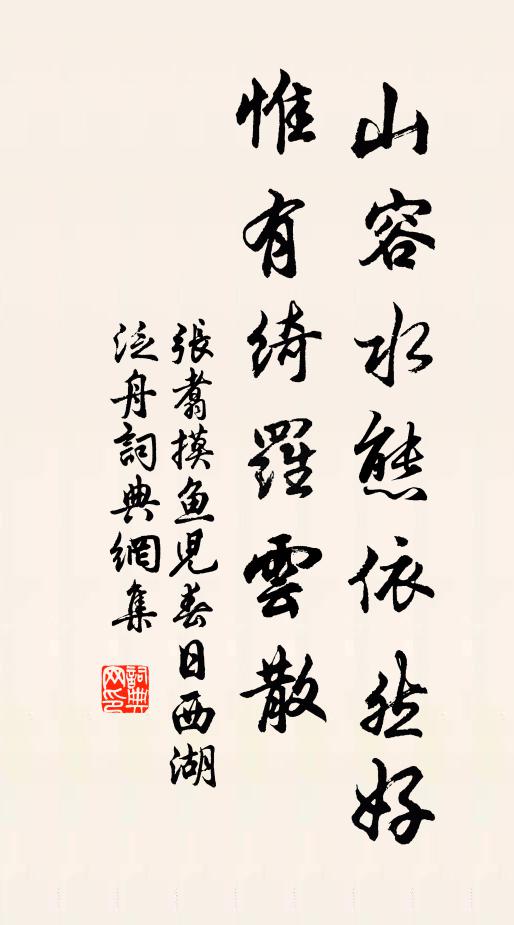 山容水態依然好
惟有綺羅雲散
張翥摸魚兒春日西湖
泛舟詞典網集
詞典网印